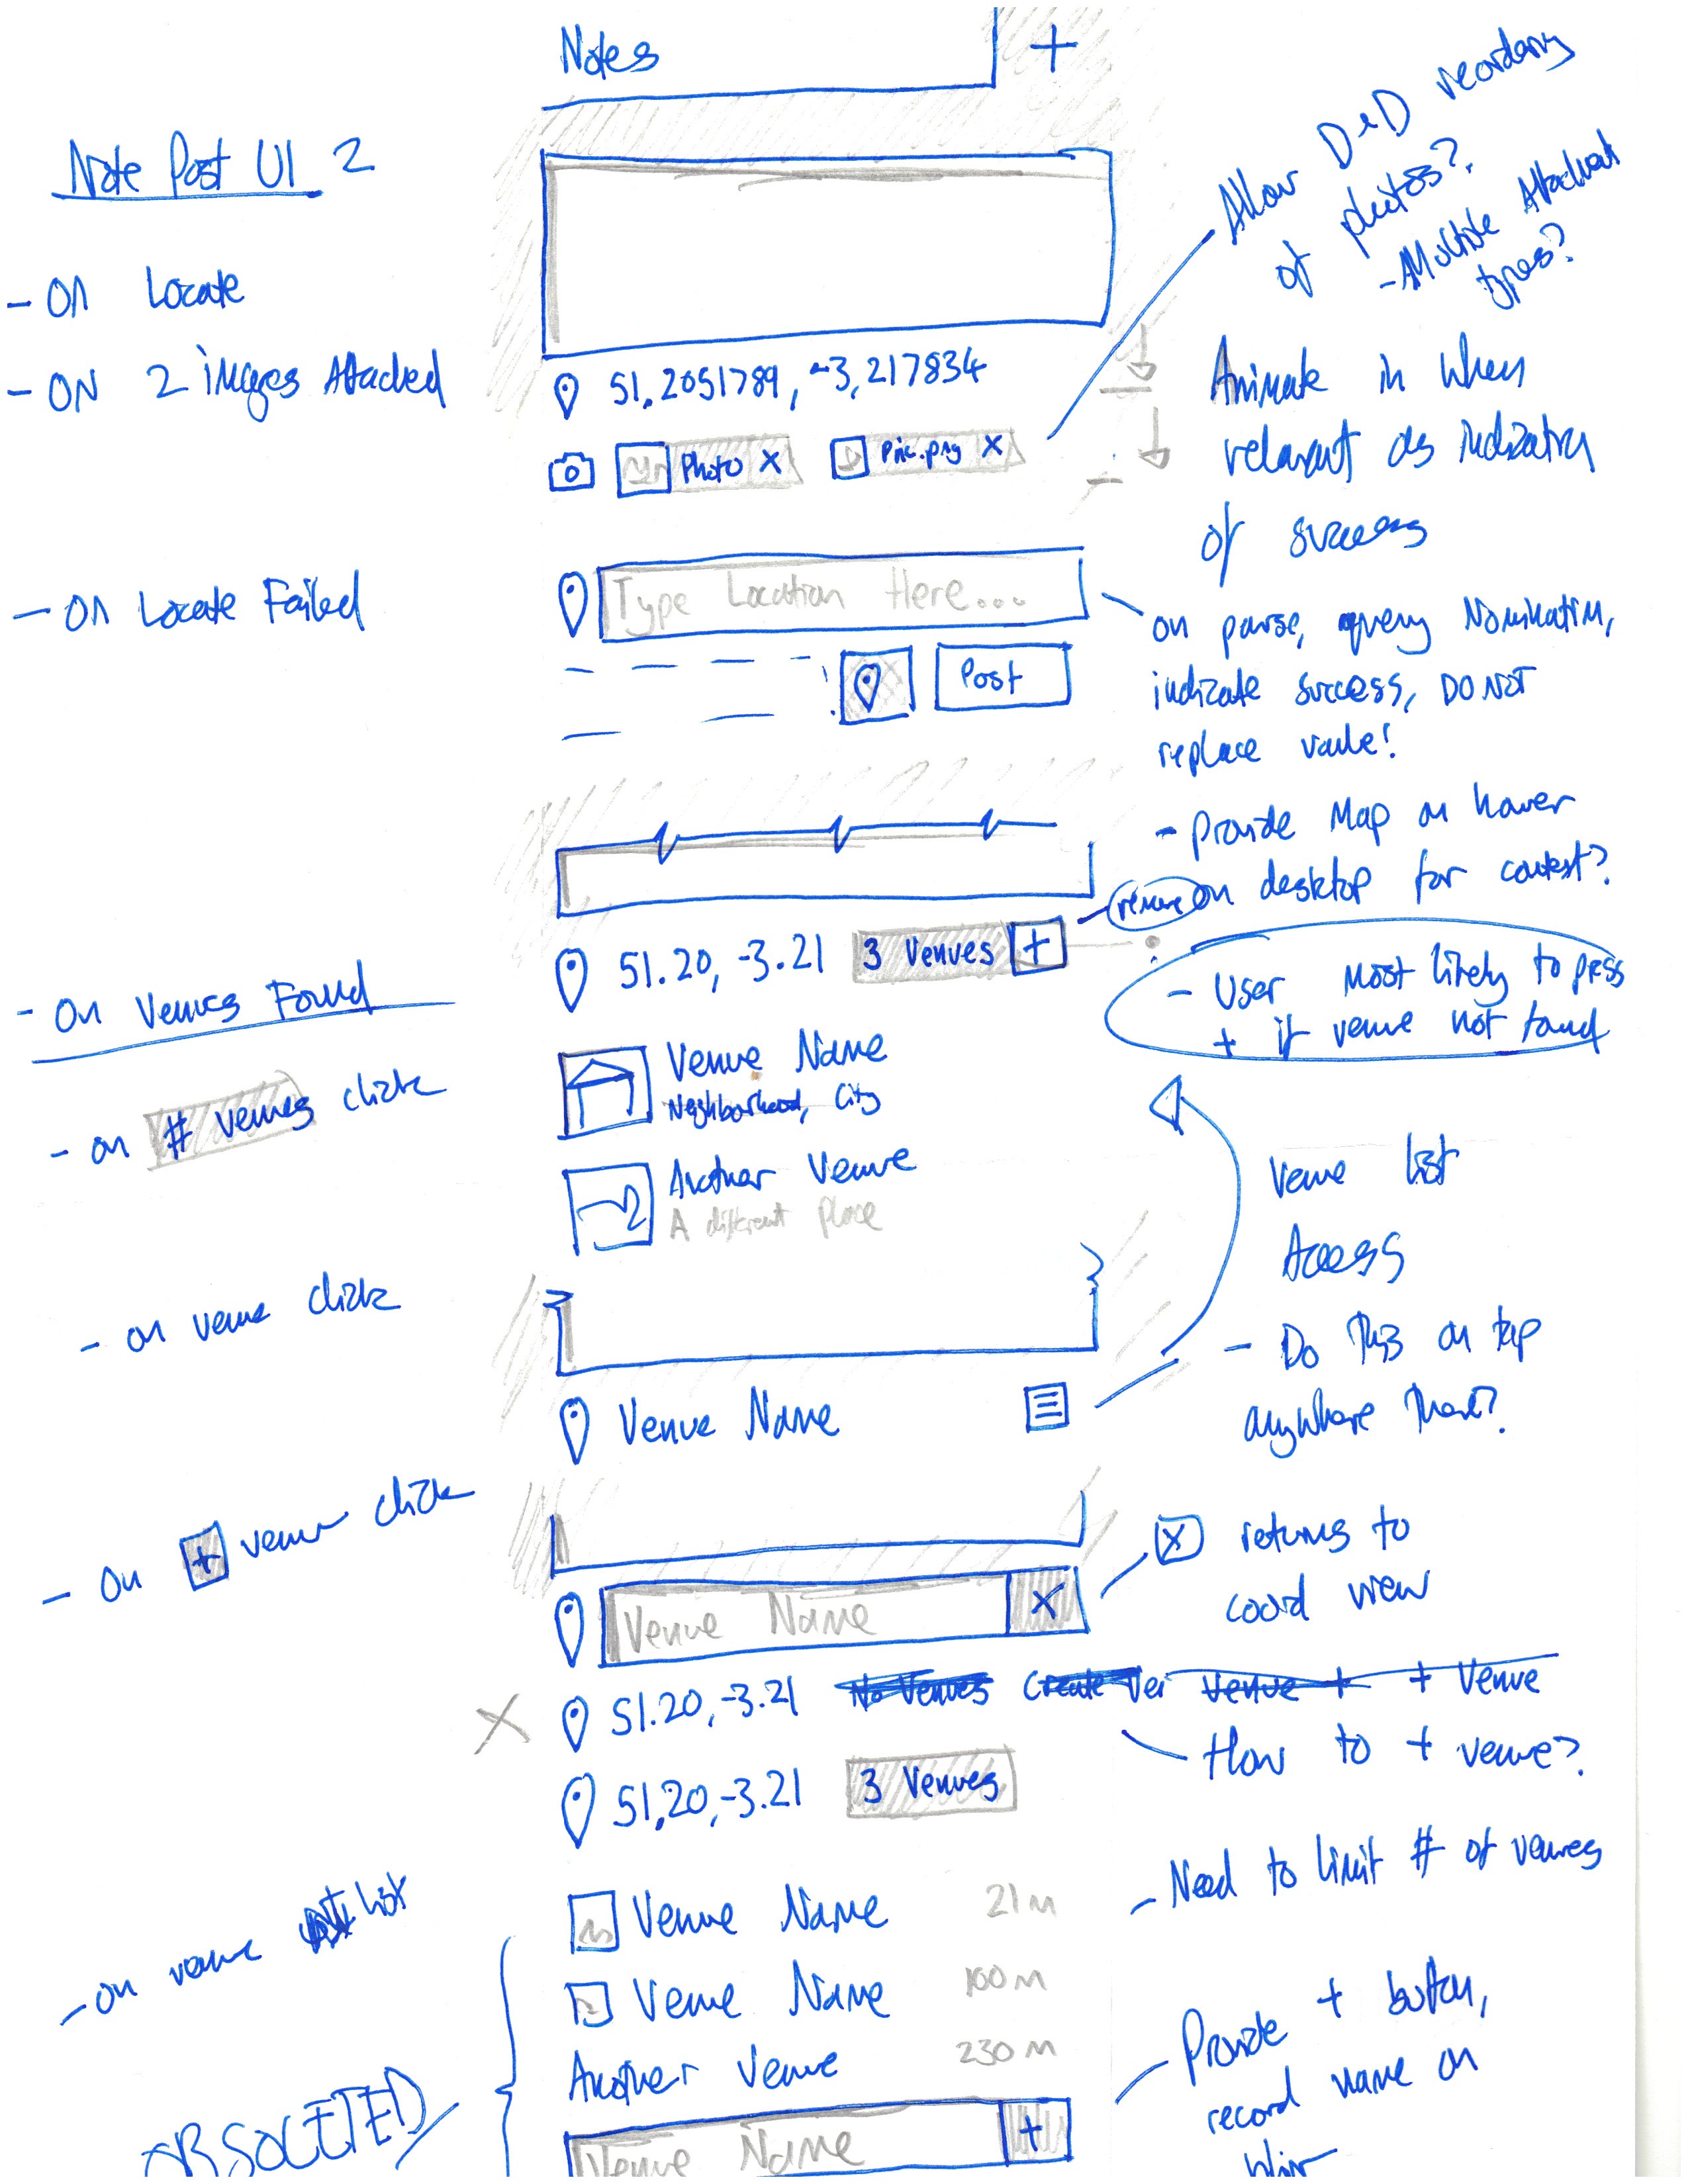 Notes
+
Note Post UI 2
- On Locate
- ON 2 images Attached
51.2051789, -3.217834
Photo X
Pic.png X
Allow D&D reordering
of photos?
- Multiple Attachment
types?
Animate in when
relevant as indication
of success
- On Locate Failed
Type Location Here...
Post
on parse, query Nominatim,
indicate success, DO NOT
replace value!
- Provide Map on hover
on desktop for context?
- On Venues Found
51.20, -3.21 3 Venues +
- User Most likely to press
+ if venue not found
- on # venues click
Venue Name
Neighborhood, City
Another Venue
A different place
- on venue click
Venue Name
Venue list
Access
- Do this on tap
anywhere there?
- On + venue click
Venue Name X
X returns to
coord view
X 51.20, -3.21 No Venues Create Ven Venue + + Venue
- How to + venue?
51.20, -3.21 3 Venues
- on venue list
Venue Name 21m
Venue Name 100m
Another Venue 230m
Venue Name +
- Need to limit # of venues
- Provide + button,
record name on
OBSOLETED